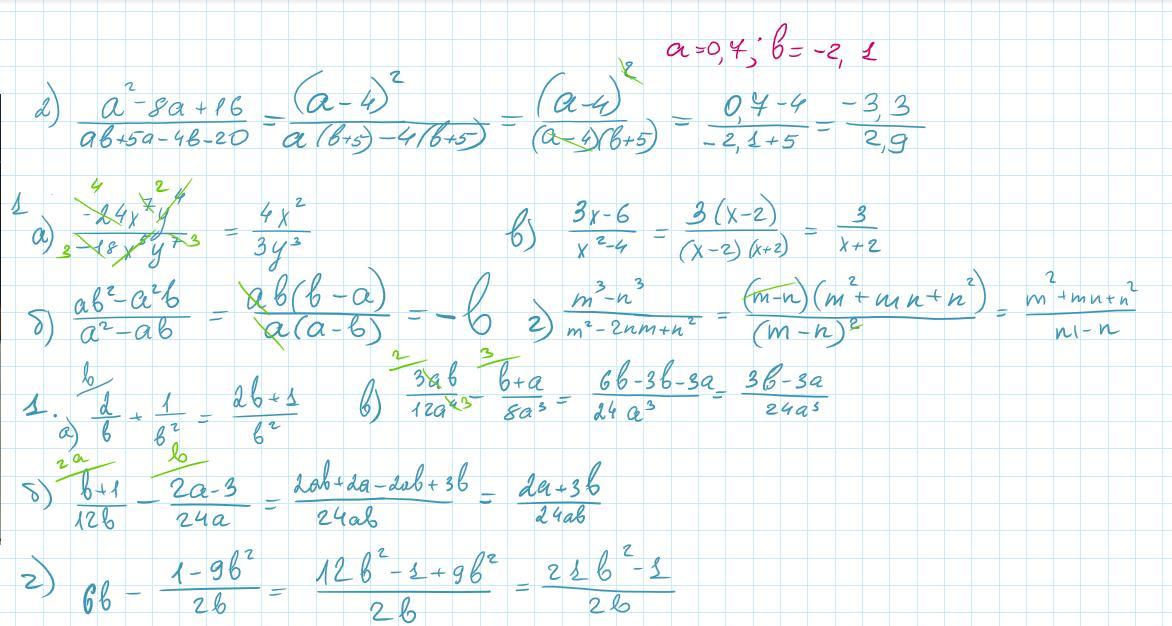 a=0,7; b=-2,1
2) (a²-8a+16)/(ab+5a-4b-20) = (a-4)²/(a(b+5)-4(b+5)) = (a-4)²/((a-4)(b+5)) = (0,7-4)/(-2,1+5) = -3,3/2,9
1 а) 4 2 -24x⁷y⁴/(-18x⁵y⁷) 3 3 = 4x²/3y³ в) (3x-6)/(x²-4) = 3(x-2)/((x-2)(x+2)) = 3/(x+2)
б) (ab²-a²b)/(a²-ab) = ab(b-a)/(a(a-b)) = -b г) (m³-n³)/(m²-2nm+n²) = (m-n)(m²+mn+n²)/(m-n)² = (m²+mn+n²)/(m-n)
1. а) b/ 2/b + 1/b² = (2b+1)/b² в) 2/ 3ab/12a⁴ 3 - 3/ (b+a)/8a³ = (6b-3b-3a)/24a³ = (3b-3a)/24a³
б) 2a/ (b+1)/12b - b/ (2a-3)/24a = (2ab+2a-2ab+3b)/24ab = (2a+3b)/24ab
г) 6b - (1-9b²)/2b = (12b²-1+9b²)/2b = (21b²-1)/2b